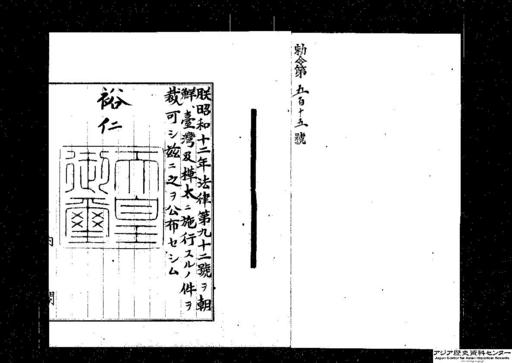 勅令第五百十五號
朕昭和十二年法律第九十二號ヲ朝
鮮、臺灣及樺太ニ施行スルノ件ヲ
裁可シ茲ニ之ヲ公布セシム
裕仁
天皇
御璽
内閣
アジア歴史資料センター
Japan Center for Asian Historical Records